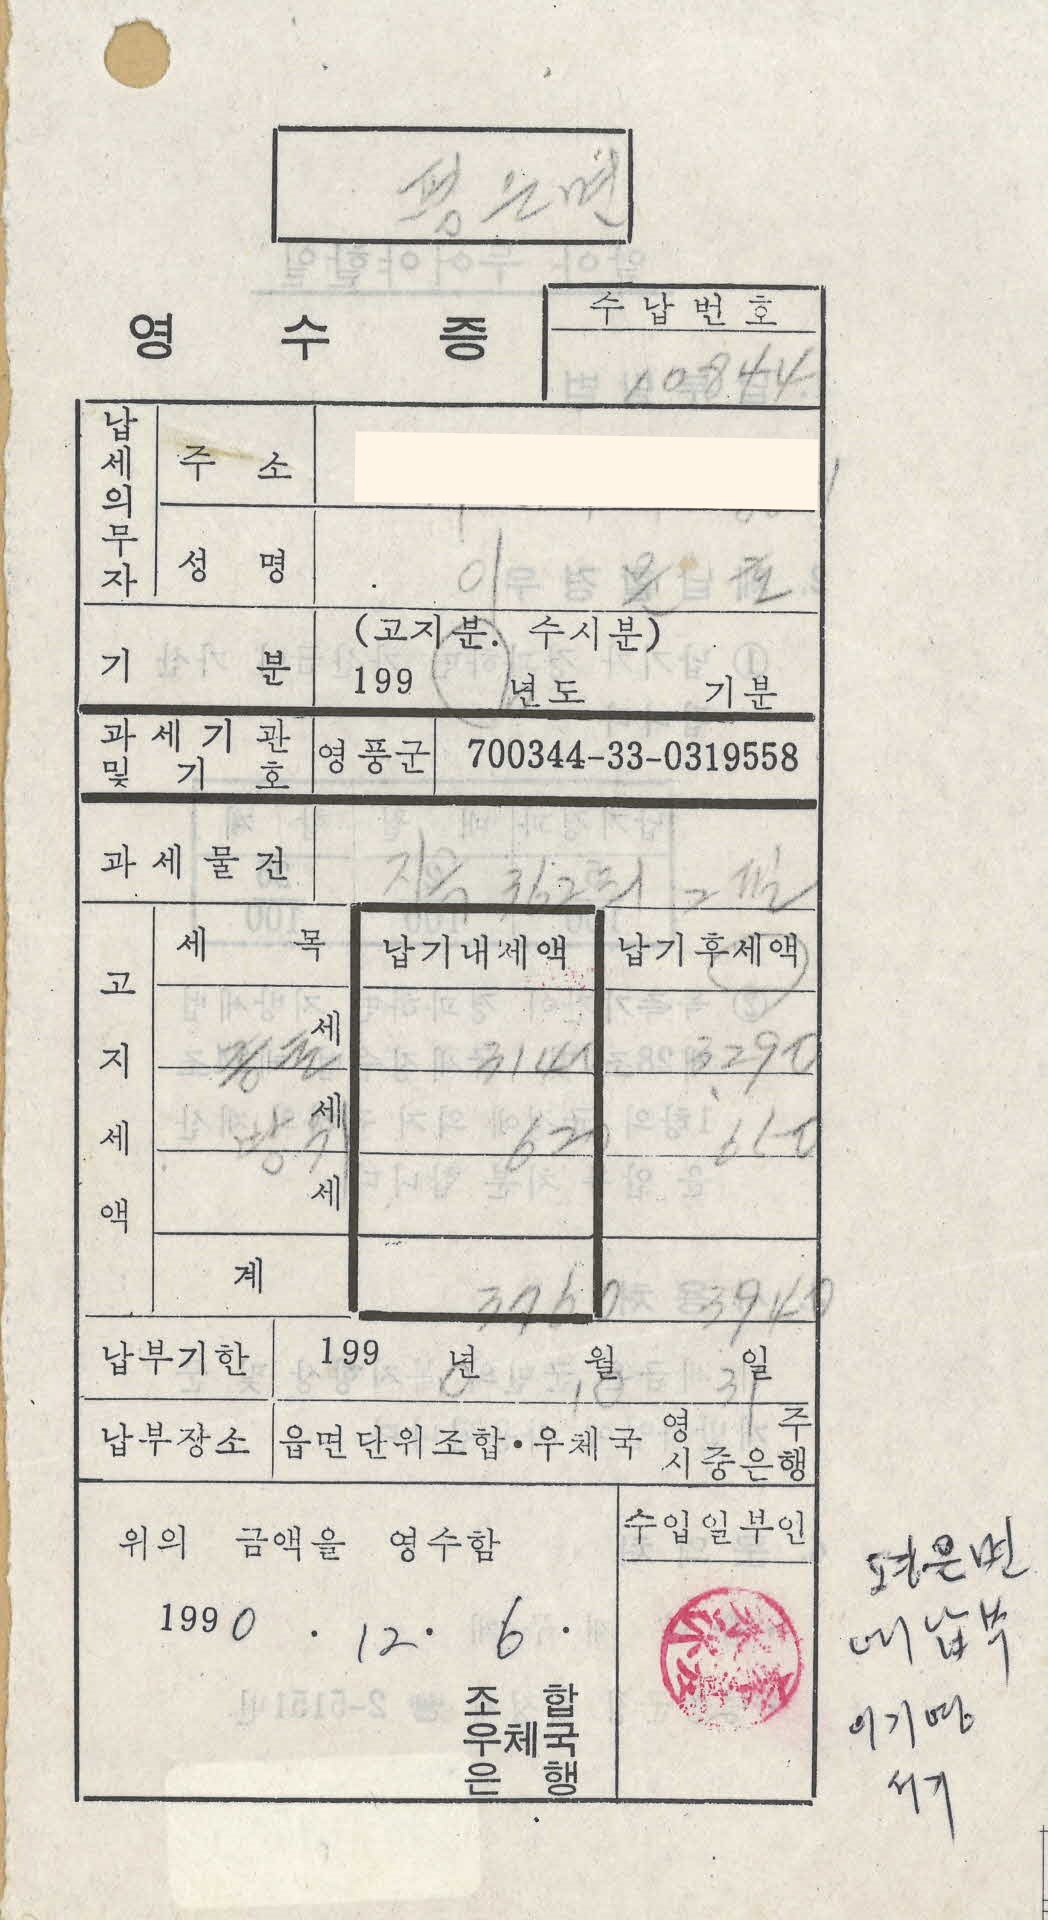 평은면
영 수 증
수납번호
10844
납세의무자
주 소
성 명
이 문 호
기 분
(고지분. 수시분)
199 년도 기분
과세기관 및 기호
영풍군
700344-33-0319558
과세물건
362
고지세액
세 목
납기내세액
납기후세액
세 3140 3290
방위 세 620 650
세
계 3760 3940
납부기한
199 0 년 10 월 31 일
납부장소
읍면단위조합·우체국
영 주
시중은행
위의 금액을 영수함
수입일부인
1990 . 12 . 6 .
조 합
우체국
은 행
평은면
에 납부
이기영
서기